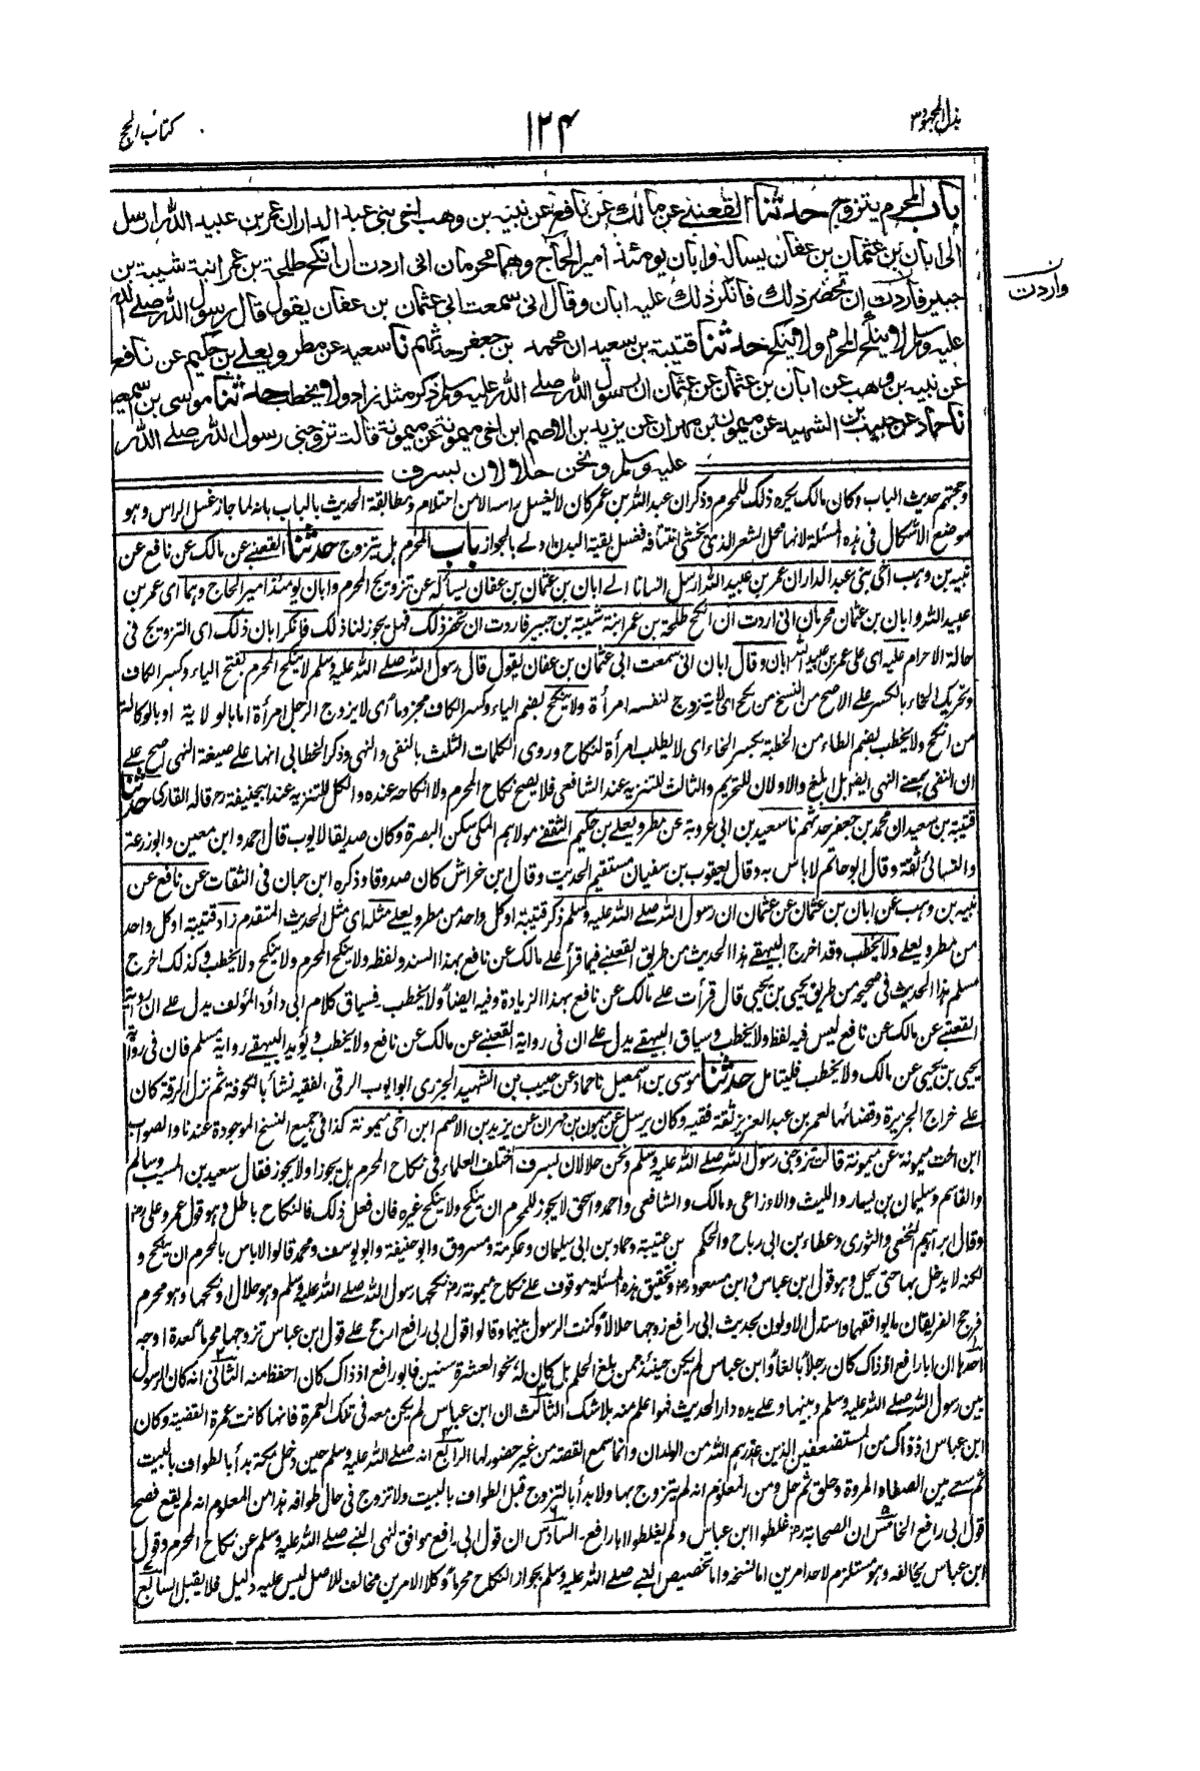 بذل المجهود ٣
١٢٤
كتاب الحج
باب المحرم يتزوج حدثنا القعنبي عن مالك عن نافع عن نبيه بن وهب اخي بني عبد الدار ان عمر بن عبيد الله ارسل
الى ابان بن عثمان بن عفان يساله وابان يومئذ امير الحاج وهما محرمان اني اردت ان انكح طلحة بن عمر ابنة شيبة بن
جبير فاردت ان تحضر ذلك فانكر ذلك عليه ابان وقال اني سمعت ابي عثمان بن عفان يقول قال رسول الله صلى الله
واردت
عليه وسلم لا ينكح المحرم ولا ينكح حدثنا قتيبة بن سعيد ان محمد بن جعفر حدثهم نا سعيد عن مطر ويعلى بن حكيم عن نافع
عن نبيه بن وهب عن ابان بن عثمان عن عثمان ان رسول الله صلى الله عليه وسلم ذكر مثله زاد ولا يخطب حدثنا موسى بن اسمعيل
نا حماد عن حبيب بن الشهيد عن ميمون بن مهران عن يزيد بن الاصم ابن اخي ميمونة عن ميمونة قالت تزوجني رسول الله صلى الله
عليه وسلم ونحن حلالان بسرف
وحجتهم حديث الباب وكان مالك يكره ذلك للمحرم وذكر ان عبد الله بن عمر كان لا يغسل راسه الا من احتلام ومطابقة الحديث بالباب بانه لما جاز غسل الراس وهو
موضع الاشكال في هذه المسئلة لانها محل الشعر الذي يخشى انتتافه فغسل بقية البدن اولى بالجواز باب المحرم هل يتزوج حدثنا القعنبي عن مالك عن نافع عن
نبيه بن وهب اخي بني عبد الدار ان عمر بن عبيد الله ارسل انسانا الى ابان بن عثمان بن عفان يسأله عن تزويج المحرم وابان يومئذ امير الحاج وهما اى عمر بن
عبيد الله وابان بن عثمان محرمان اني اردت ان انكح طلحة بن عمر ابنة شيبة بن جبير فاردت ان تحضر ذلك فهل يجوز لنا ذلك فانكر ابان ذلك اى التزويج في
حالة الاحرام عليه اى على عمر بن عبيد الله ابان وقال ابان اني سمعت ابي عثمان بن عفان يقول قال رسول الله صلى الله عليه وسلم لا ينكح المحرم بفتح الياء وكسر الكاف
وتحريك الحاء بالكسر على الاصح من النسخ من نكح اى لا يتزوج لنفسه امرأة ولا ينكح بضم الياء وكسر الكاف مجزوما اى لا يزوج الرجل امرأة اما بالولاية او بالوكالة
من انكح ولا يخطب بضم الطاء من الخطبة بكسر الخاء اى لا يطلب امرأة لنكاح وروى الكلمات الثلث بالنفي والنهي وذكر الخطابي انها على صيغة النهي اصح على
ان النفي بمعنى النهي ايضا بل ابلغ والاولان للتحريم والثالث للتنزيه عند الشافعي فلا يصح نكاح المحرم ولا انكاحه عنده والكل للتنزيه عند ابي حنيفة رح قاله القاري حدثنا
قتيبة بن سعيد ان محمد بن جعفر حدثهم نا سعيد بن ابي عروبة عن مطر ويعلى بن حكيم الثقفي مولاهم المكي سكن البصرة وكان صديقا لايوب قال احمد وابن معين وابو زرعة
والنسائي ثقة وقال ابو حاتم لا باس به وقال يعقوب بن سفيان مستقيم الحديث وقال ابن خراش كان صدوقا وذكره ابن حبان في الثقات عن نافع عن
نبيه بن وهب عن ابان بن عثمان عن عثمان ان رسول الله صلى الله عليه وسلم ذكر قتيبة او كل واحد من مطر ويعلى مثله اى مثل الحديث المتقدم زاد قتيبة او كل واحد
من مطر ويعلى ولا يخطب وقد اخرج البيهقي هذا الحديث من طريق القعنبي فيما قرأ على مالك عن نافع بهذا السند ولفظه ولا ينكح المحرم ولا ينكح ولا يخطب وكذلك اخرج
مسلم هذا الحديث في صحيحه من طريق يحيى بن يحيى قال قرأت على مالك عن نافع بهذا الزيادة وفيه ايضا ولا يخطب ۔ فسياق كلام ابي داؤد المؤلف يدل على ان رواية
القعنبي عن مالك عن نافع ليس فيه لفظ ولا يخطب وسياق البيهقي يدل على ان في رواية القعنبي عن مالك عن نافع ولا يخطب ويؤيد البيهقي رواية مسلم فان في رواية
يحيى بن يحيى عن مالك ولا يخطب فليتامل حدثنا موسى بن اسمعيل نا حماد عن حبيب بن الشهيد الجزري ابو ايوب الرقي الفقيه نشأ بالكوفة ثم نزل الرقة كان
على خراج الجزيرة وقضائها لعمر بن عبد العزيز ثقة فقيه وكان يرسل عن ميمون بن مهران عن يزيد بن الاصم ابن اخي ميمونة كذا في جميع النسخ الموجودة عندنا والصواب
ابن اخت ميمونة عن ميمونة قالت تزوجني رسول الله صلى الله عليه وسلم ونحن حلالان بسرف اختلف العلماء في نكاح المحرم هل يجوز او لا يجوز فقال سعيد بن المسيب وسالم
والقاسم وسليمان بن يسار والليث والاوزاعي ومالك والشافعي واحمد واسحق لا يجوز للمحرم ان ينكح ولا ينكح غيره فان فعل ذلك فالنكاح باطل وهو قول عمر وعلي رض
وقال ابراهيم النخعي والثوري وعطاء بن ابي رباح والحكم بن عتيبة وحماد بن ابي سليمان وعكرمة ومسروق وابو حنيفة وابو يوسف ومحمد قالوا لا باس بالمحرم ان ينكح و
لكنه لا يدخل بها حتى يحل وهو قول ابن عباس وابن مسعود رض وتحقيق هذه المسئلة موقوف على نكاح ميمونة رض نكحها رسول الله صلى الله عليه وسلم وهو حلال او نكحها وهو محرم
فرجح الفريقان ما يوافقهما واستدل الاولون بحديث ابي رافع زوجها حلالا وكنت الرسول بينهما وقالوا قول ابي رافع ارجح على قول ابن عباس تزوجها محرما لعدة اوجه
احدها ان ابا رافع اذ ذاك كان رجلا بالغا وابن عباس لم يكن حينئذ ممن بلغ الحلم بل كان له نحو العشرة سنين فابو رافع اذ ذاك كان احفظ منه الثاني انه كان الرسول
بين رسول الله صلى الله عليه وسلم وبينها وعلى يده دار الحديث فهو اعلم منه بلا شك الثالث ان ابن عباس لم يكن معه في تلك العمرة فانها كانت عمرة القضية وكان
ابن عباس اذ ذاك من المستضعفين الذين عذرهم الله من الولدان وانما سمع القصة من غير حضور لها الرابع انه صلى الله عليه وسلم حين دخل مكة بدأ بالطواف بالبيت
ثم سعى بين الصفا والمروة وحلق ثم حل ومن المعلوم انه لم يتزوج بها ولا بدأ بالتزوج قبل الطواف بالبيت ولا تزوج في حال طوافه هذا من المعلوم انه لم يقع فصح
قول ابي رافع الخامس ان الصحابة رض غلطوا ابن عباس ولم يغلطوا ابا رافع ۔ السادس ان قول ابي رافع موافق لنهي النبي صلى الله عليه وسلم عن نكاح المحرم وقول
ابن عباس يخالفه وهو مستلزم لاحد امرين اما لنسخه واما تخصيص النبي صلى الله عليه وسلم بجواز النكاح محرما وكلا الامرين مخالف للاصل ليس عليه دليل فلا يقبل السابع